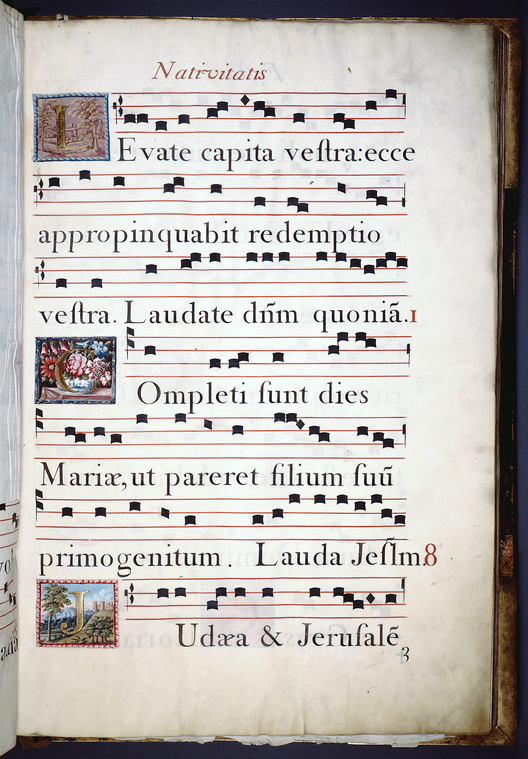 Nativitatis
LEvate capita veſtra:ecce
appropinquabit redemptio
veſtra. Laudate dñm quoniã.1
COmpleti ſunt dies
Mariæ,ut pareret filium ſuũ
primogenitum. Lauda Jeſlm.8
JUdæa & Jeruſalẽ
3